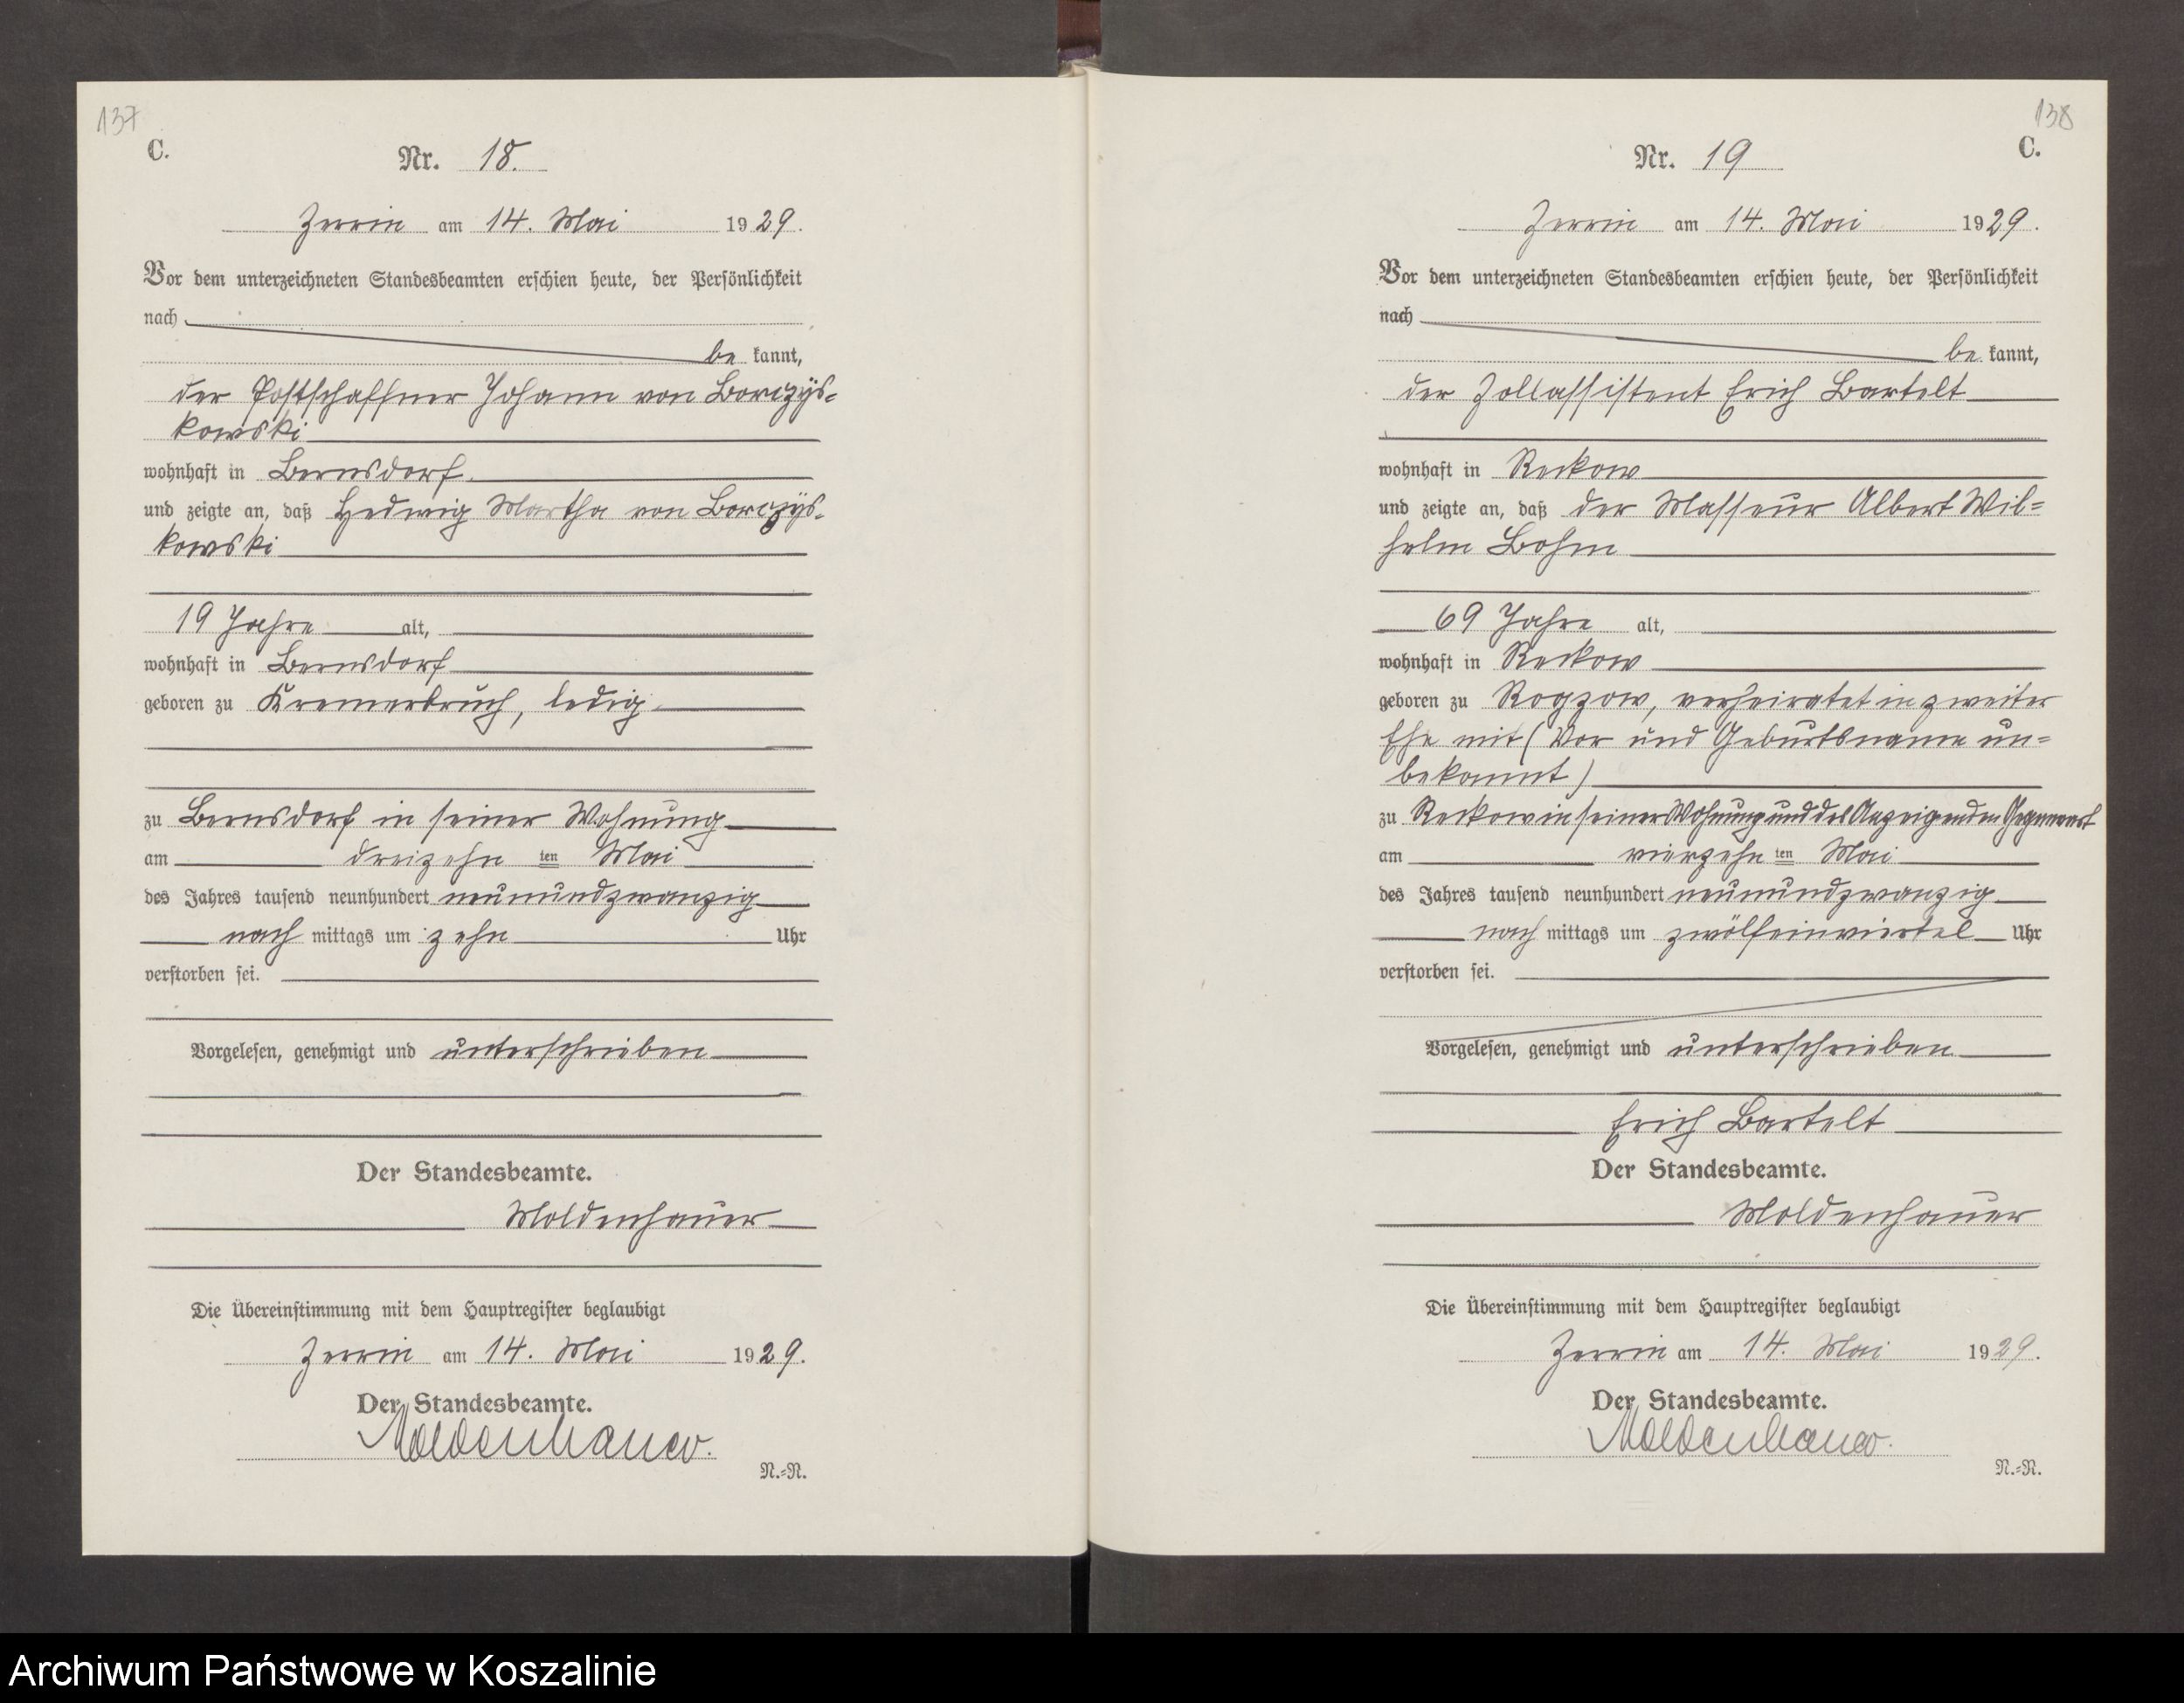 137
C.
Nr. 18.
Zerrin am 14. Mai 1929.
Vor dem unterzeichneten Standesbeamten erschien heute, der Persönlichkeit
nach
be kannt,
der Postschaffner Johann von Borczys-
kowski
wohnhaft in Bernsdorf.
und zeigte an, daß Hedwig Martha von Borczys-
kowski
19 Jahre alt,
wohnhaft in Bernsdorf
geboren zu Kremerbruch, ledig.
zu Bernsdorf in seiner Wohnung
am dreizehn ten Mai
des Jahres tausend neunhundert neunundzwanzig
nach mittags um zehn Uhr
verstorben sei.
Vorgelesen, genehmigt und unterschrieben
Der Standesbeamte.
Moldenhauer
Die Übereinstimmung mit dem Hauptregister beglaubigt
Zerrin am 14. Mai 1929.
Der Standesbeamte.
Moldenhauer.
N.=N.
138
C.
Nr. 19
Zerrin am 14. Mai 1929.
Vor dem unterzeichneten Standesbeamten erschien heute, der Persönlichkeit
nach
be kannt,
der Zollassistent Erich Bartelt
wohnhaft in Reckow
und zeigte an, daß der Masseur Albert Wil=
helm Bohm
69 Jahre alt,
wohnhaft in Reckow
geboren zu Rogzow, verheiratet in zweiter
Ehe mit (Vor und Geburtsname un=
bekannt)
zu Reckow in seiner Wohnung und des Anzeigenden Gegenwart
am vierzehn ten Mai
des Jahres tausend neunhundert neunundzwanzig
nach mittags um zwölfeinviertel Uhr
verstorben sei.
Vorgelesen, genehmigt und unterschrieben
Erich Bartelt
Der Standesbeamte.
Moldenhauer
Die Übereinstimmung mit dem Hauptregister beglaubigt
Zerrin am 14. Mai 1929.
Der Standesbeamte.
Moldenhauer.
N.=N.
Archiwum Państwowe w Koszalinie